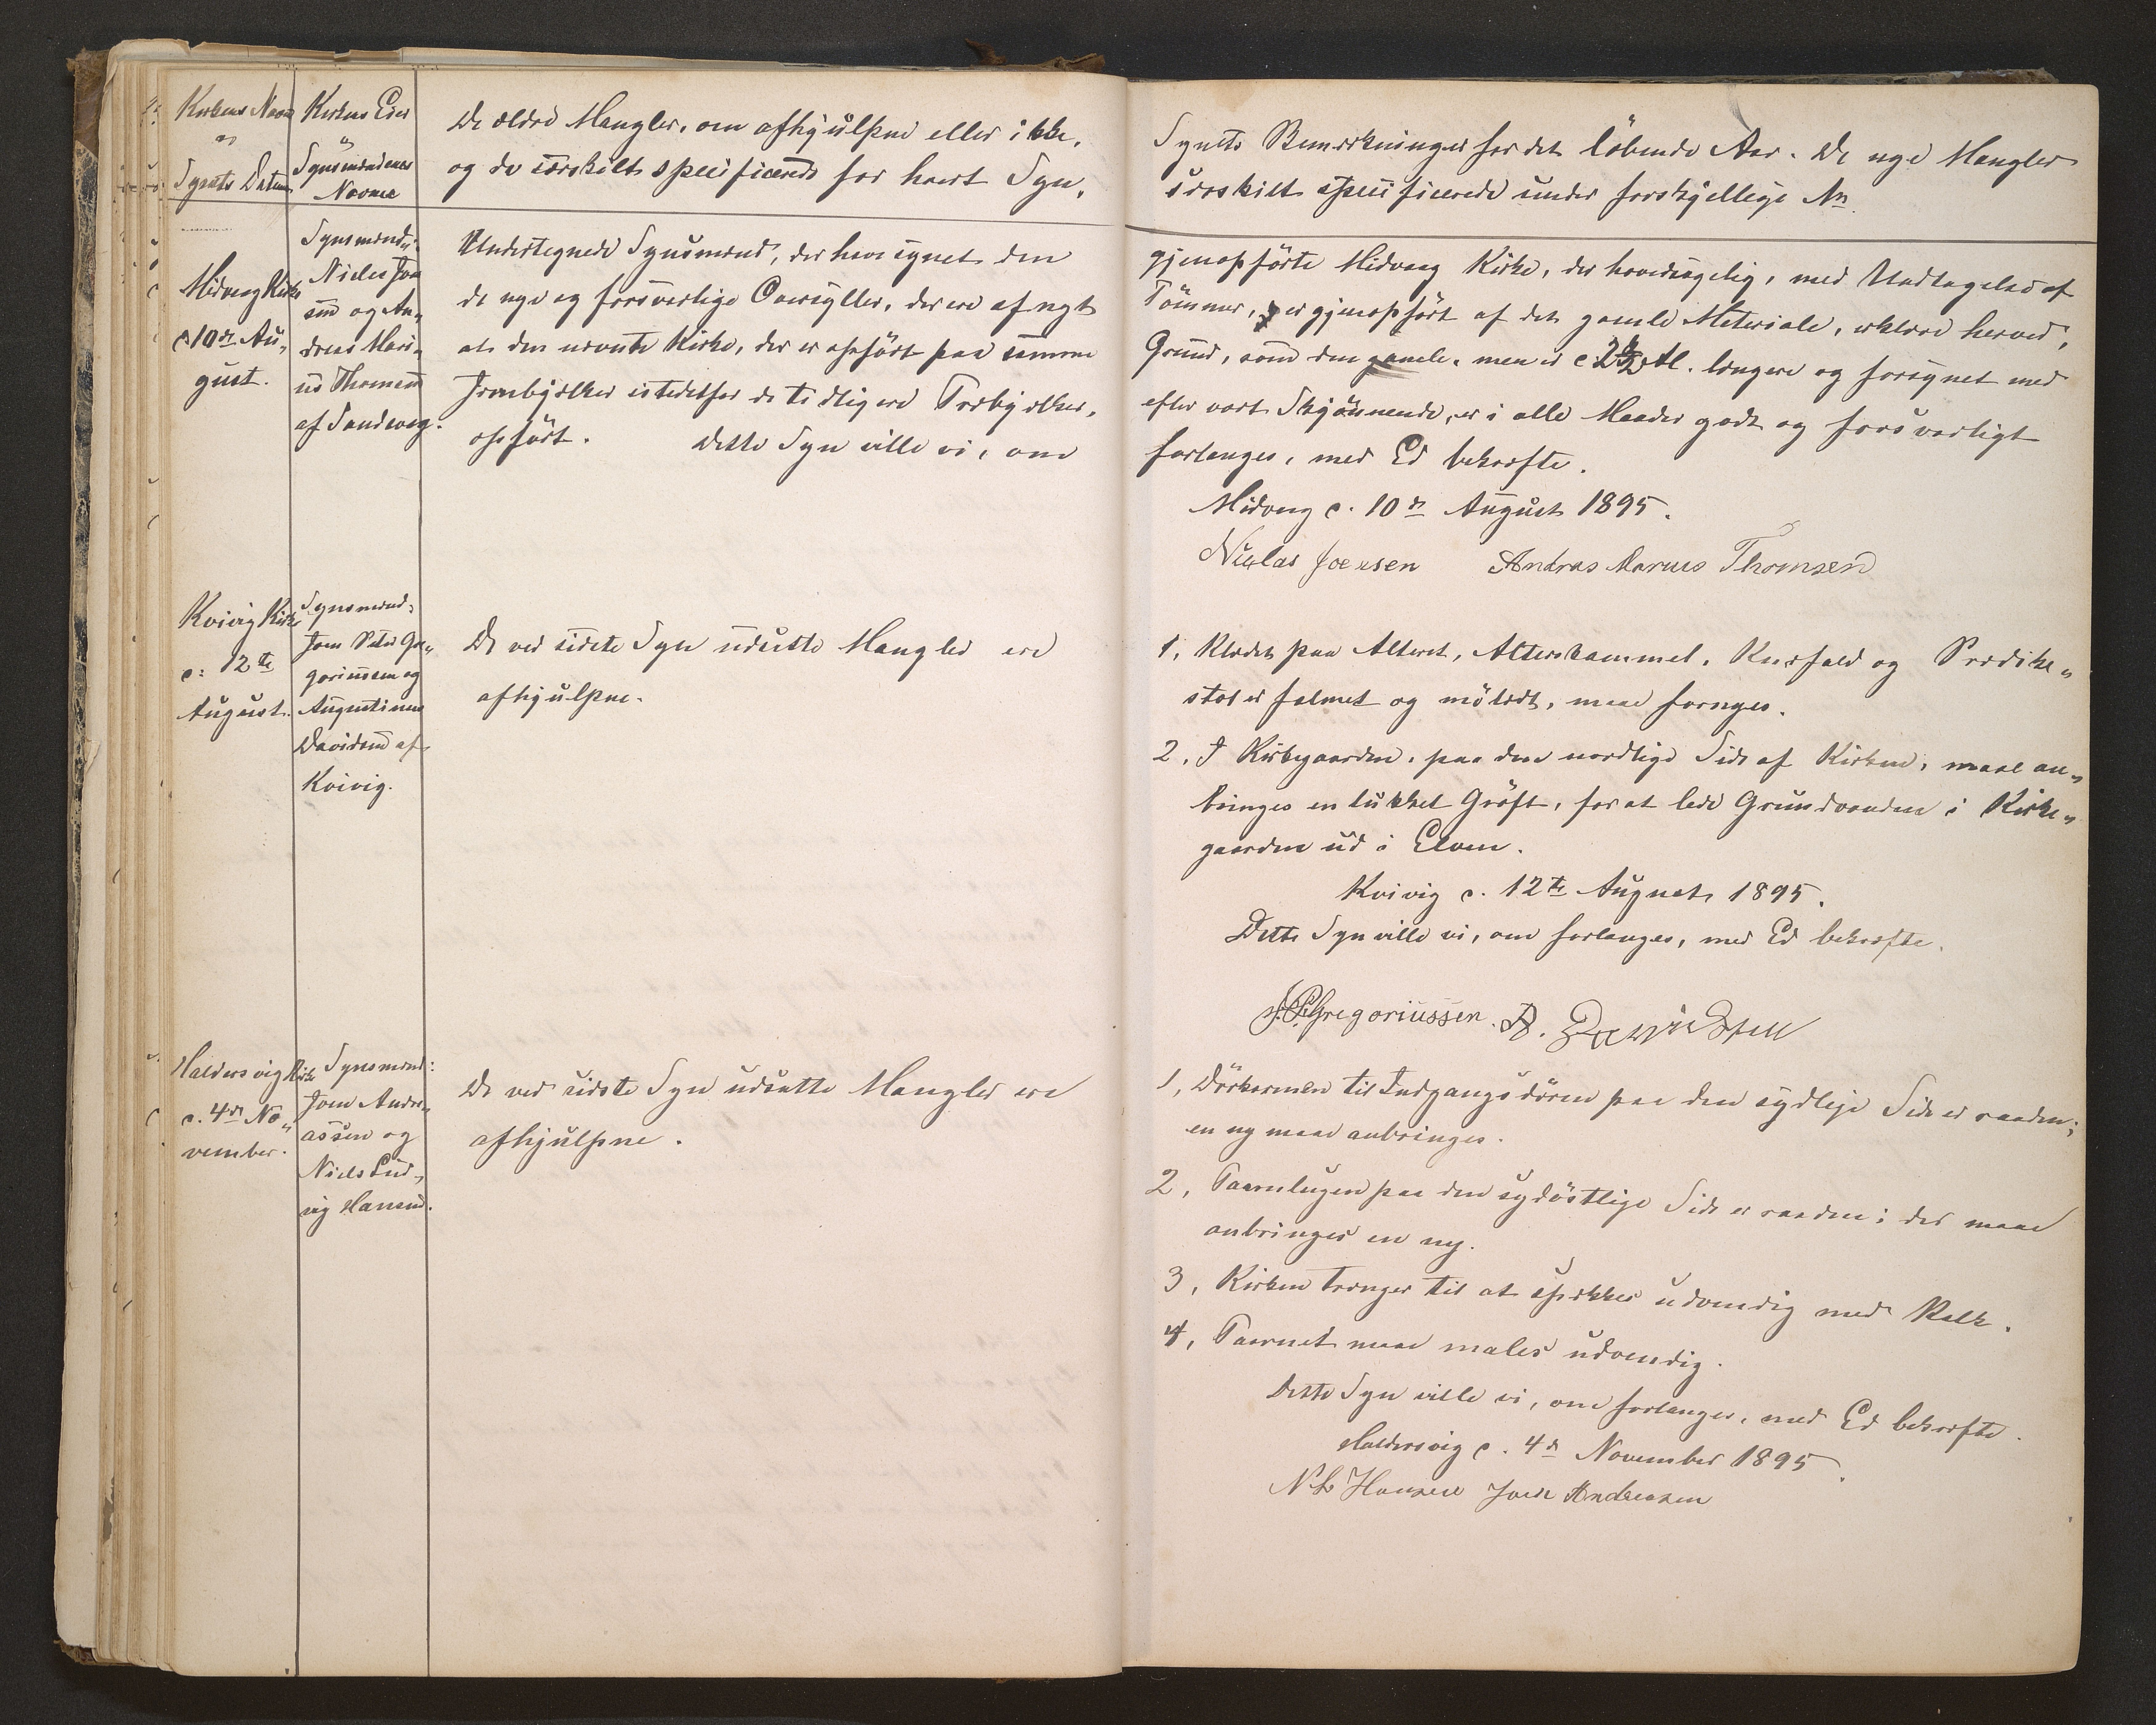 Kirkens Navn
og
Synets Datum
Kirkens Eier
og
Synsmændenes
Navne
De ældre Mangler, om afhjulpne eller ikke,
og de særskilt specificerede for hvert Syn.
Midvaag Kirke
d. 10de Au„
gust.
Synsmænd:
Niclas Joen
sen og An„
dreas Mari„
us Thomsen
af Sandevaag.
Undertegnede Synsmænd, der have synet den
de nye og forsvarlige Oversyller, der ere af nyt
at den nævnte Kirke, der er opført paa samme
Jernbjælker istedetfor de tidligere Træbjælker,
opført. Dette Syn ville vi, om
Kvivig Kirke
d. 12te
August.
Synsmænd:
Joen Peter Gre„
goriussen og
Augustinus
Davidsen af
Kvivig.
De ved sidste Syn udsatte Mangler ere
afhjulpne.
Haldersvig Kirke
d. 4de No„
vember.
Synsmænd:
Joen Andre„
assen og
Niels Lud„
vig Hansen.
De ved sidste Syn udsatte Mangler ere
afhjulpne.
Synets Bemærkninger for det løbende Aar. De nye Mangler
særskilt specificerede under forskjellige Nr.
gjenopførte Midvaag Kirke, der hovedsagelig, med Undtagelse af
Tømmer, er gjenopført af det gamle Materiale, erklære herved,
Grund, som den gamle, men er c. 2½ Al. længere og forsynet med
efter vort Skjønnende, er i alle Maader godt og forsvarligt
forlanges, med Ed bekræfte.
Midvaag d. 10de August 1895.
Niclas Joensen Andras Marius Thomsen
1, Klædet paa Alteret, Alterskammel, Knæfald og Prædike„
stol er falmet og mølædt, maa fornyes.
2, I Kirkegaarden, paa den nordlige Side af Kirken, maae an„
bringes en lukket Grøft, for at lede Grundvandet i Kirke„
gaarden ud i Elven.
Kvivig d. 12te August 1895.
Dette Syn ville vi, om forlanges, med Ed bekræfte.
J.P. Gregoriussen. A. Davidsen
1, Dørkarmen til Indgangsdøren paa den sydlige Side er raaden;
en ny maae anbringes.
2, Taarnlugen paa den sydøstlige Side er raaden; der maae
anbringes en ny.
3, Kirken trænger til at spækkes udvendig med Kalk.
4, Taarnet maae males udvendig.
Dette Syn ville vi, om forlanges, med Ed bekræfte.
Haldersvig d. 4de November 1895.
N L Hansen Joen Andreasen